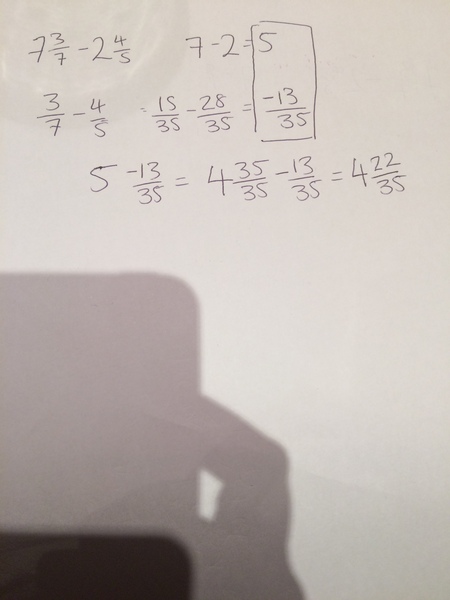 7 3/7 - 2 4/5 7 - 2 = 5
3/7 - 4/5 = 15/35 - 28/35 = -13/35
5 -13/35 = 4 35/35 - 13/35 = 4 22/35